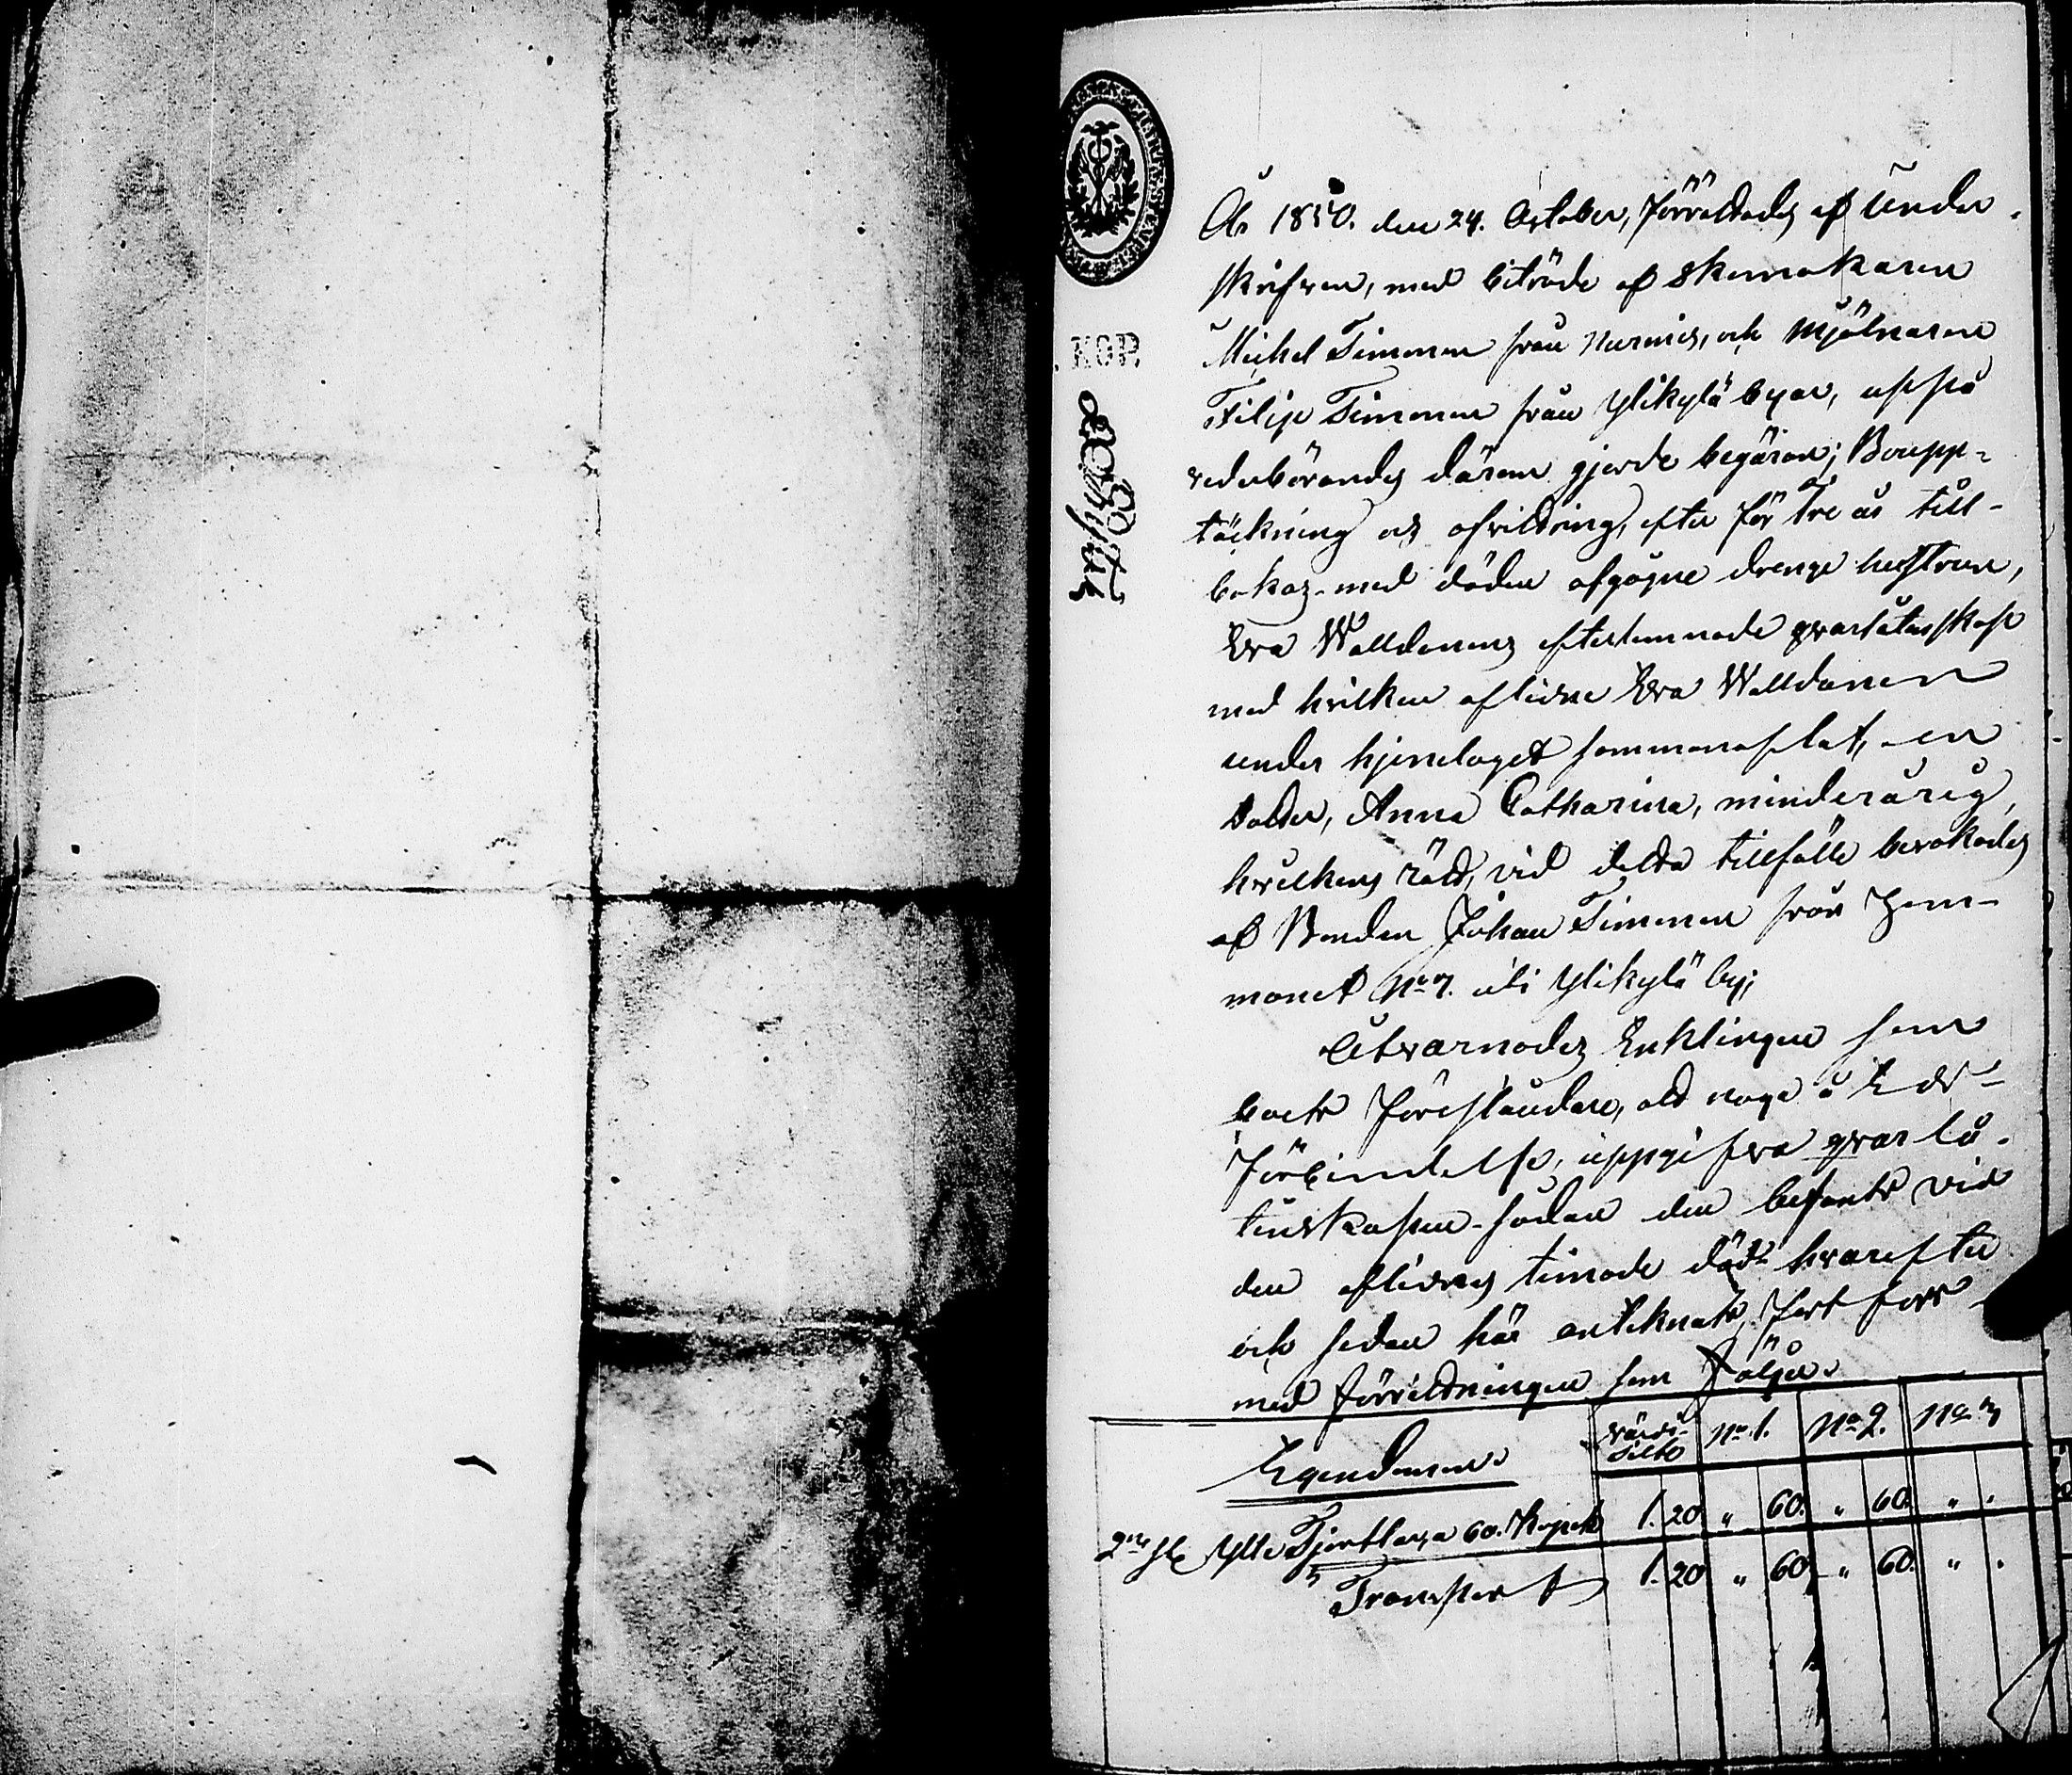 År 1850. den 24. October, förrättades af Under-
skrifven, med biträde af Skomakaren
Michel Timonen från Nurmis, och Mjölnaren
Filip Timonen från Ylikylä byar, uppå
vederbörandes därom gjorde begäran; Boupp-
täckning och afvittring, efter för Tre år till-
baka - med döden afgågne drenge hustrun,
Eva Walldonens efterlemnade qvarlåtenskap
med hvilken aflidne Eva Walldonen
under hjonelaget sammanaflat, en
Dotter, Anna Catharina, minderårig,
hvilkens rätt, vid detta tillfälle bevakades
af Bonden Johan Timonen från Hem-
manet No 7. uti Ylikylä by;
Åtvarnades Enklingen som
boets föreståndare, att noga å Eds-
förbindelse, uppgifva qvarlå-
tenskapen - sådan den befants vid
den aflidnes timade död - hvarefter
och sedan här antecknats, fortfors
med förrättningen som följer.
Egendomen
Värde Silfr No. 1. No 2. No 3
2ne st Ylle Tjortlar, a 60. Kopek 1. 20 " 60. " 60. " "
Transport 1. 20 " 60. " 60. " "
KOP.